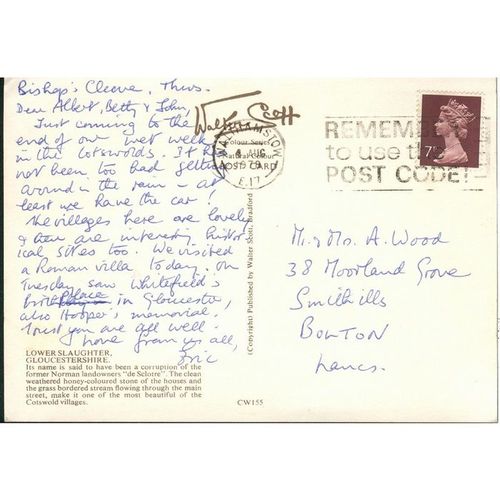 Bishop's Cleeve, Thurs.
Dear Albert, Betty & John,
Just coming to the
end of our wet week
in the Cotswolds. It has
not been too bad getting
around in the rain – at
least we have the car!
The villages here are lovely
& there are interesting histor-
ical sites too. We visited
a Roman villa today. On
Tuesday saw Whitefield's
birthplace in Gloucester,
also Hooper's memorial.
Trust you are all well.
Love from us all,
Eric
LOWER SLAUGHTER,
GLOUCESTERSHIRE.
Its name is said to have been a corruption of the
former Norman landowners "de Sclotre". The clean
weathered honey-coloured stone of the houses and
the grass bordered stream flowing through the main
street, make it one of the most beautiful of the
Cotswold villages.
Walter Scott
Colour Series
Natural Colour
POST CARD
WALTHAMSTOW
AUG
E.17
(Copyright) Published by Walter Scott, Bradford
CW155
REMEMBER
to use the
POST CODE!
7
Mr & Mrs. A. Wood
38 Moorland Grove
Smithills
BOLTON
Lancs.